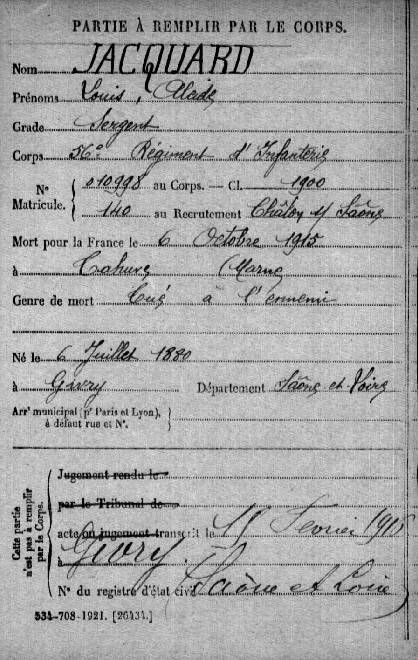 PARTIE À REMPLIR PAR LE CORPS.
Nom JACQUARD
Prénoms Louis,
Grade Sergent
Corps 56e Régiment d'Infanterie
N° Matricule. { 010998 au Corps. — Cl. 1900
140 au Recrutement Châlon s/ Saône
Mort pour la France le 6 Octobre 1915
à Tahure (Marne
Genre de mort Tué à l'ennemi
Né le 6 Juillet 1880
à Givry Département Saône et Loire
Arrt municipal (pr Paris et Lyon), à défaut rue et N°.
Cette partie n'est pas à remplir par le Corps.
Jugement rendu le
par le Tribunal de
acte ou jugement transcrit le Février
à Givry
N° du registre d'état civil Saône et Loire
534-708-1921. [26434.]